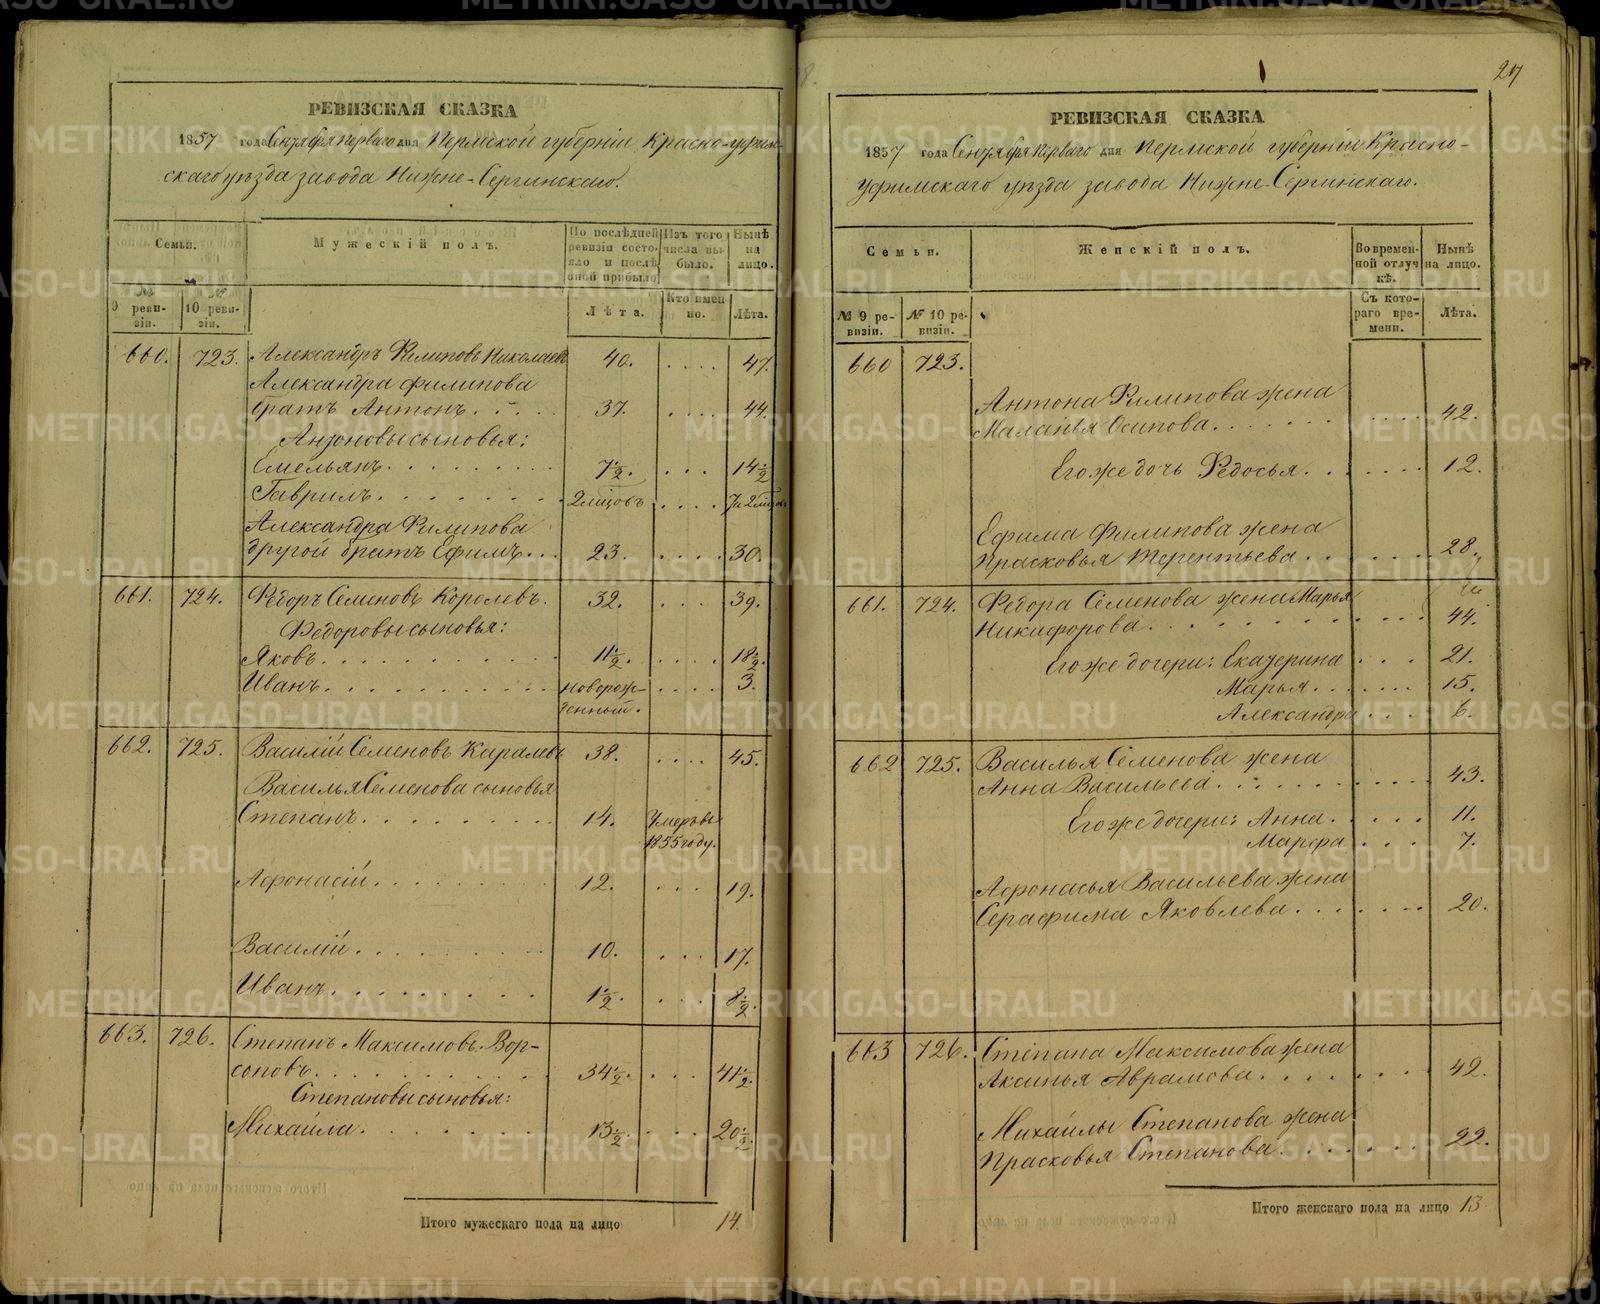 РЕВИЗСКАЯ СКАЗКА
1857 года Сентября перваго дня Пермской губерніи Красно-уфим-
скаго уѣзда завода Нижне-Сергинскаго.
Семьи. Мужескій полъ. По послѣдней ревизіи состояло и послѣ оной прибыло Изъ того числа выбыло. Нынѣ на лицо.
9 ревизіи. 10 ревизіи. Лѣта. Кто именно. Лѣта.
660. 723. Александръ Филиповъ Николаевъ 40. .... 47.
Александра Филипова
братъ Антонъ. 37. .... 44.
Антоновы сыновья:
Емельянъ. 7½. ... 14½
Гаврилъ. 2 мѣцовъ ....
Александра Филипова
другой братъ Ефимъ... 23. .... 30.
661. 724. Ѳедоръ Семеновъ Королевъ. 32. ... 39.
Ѳедоровы сыновья:
Яковъ. 11½. .... 18½.
Иванъ. новорож- .... 3.
денный.
662. 725. Василій Семеновъ Каралевъ 38. .... 45.
Василья Семенова сыновья
Степанъ. 14. Умеръ въ
1855 году.
Афонасій. 12. ... 19.
Василій. 10. ... 17.
Иванъ. 1½. .... 8½.
663. 726. Степанъ Максимовъ Вор-
соновъ. 34½. ... 41½.
Степановы сыновья:
Михайла. 13½. .... 20½.
Итого мужескаго пола на лицо 14.
27
РЕВИЗСКАЯ СКАЗКА
1857 года Сентября перваго дня Пермской губерніи Красно-
уфимскаго уѣзда завода Нижне-Сергинскаго.
Семьи. Женскій полъ. Во временной отлучкѣ. Нынѣ на лицо.
№ 9 ревизіи. № 10 ревизіи. Съ котораго времени. Лѣта.
660 723.
Антона Филипова жена
Маланья Осипова. 42.
Его же дочь Ѳедосья. 12.
Ефима Филипова жена
Прасковья Терентьева. 28.
661. 724. Ѳедора Семенова жена Марья
Никифорова. 44.
Его же дочери: Екатерина ... 21.
Марья. 15.
Александра ... 6.
662 725. Василья Семенова жена
Анна Васильева. 43.
Его же дочери: Анна. 11.
Марфа ... 7.
Афонасья Васильева жена
Серафима Яковлева. 20.
663 726. Степана Максимова жена
Аксинья Аврамова. 42.
Михайлы Степанова жена
Прасковья Степанова. 22.
Итого женскаго пола на лицо 13